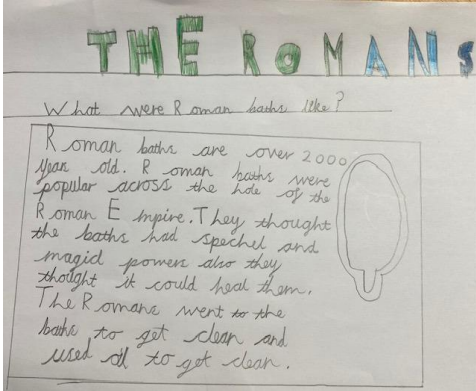 THE ROMANS
What were Roman baths like?
Roman baths are over 2000
year old. Roman baths were
popular across the hole of the
Roman Empire. They thought
the baths had spechel and
magicl powers also they
thought it could heal them.
The Romans went to the
baths to get clean and
used oil to get clean.